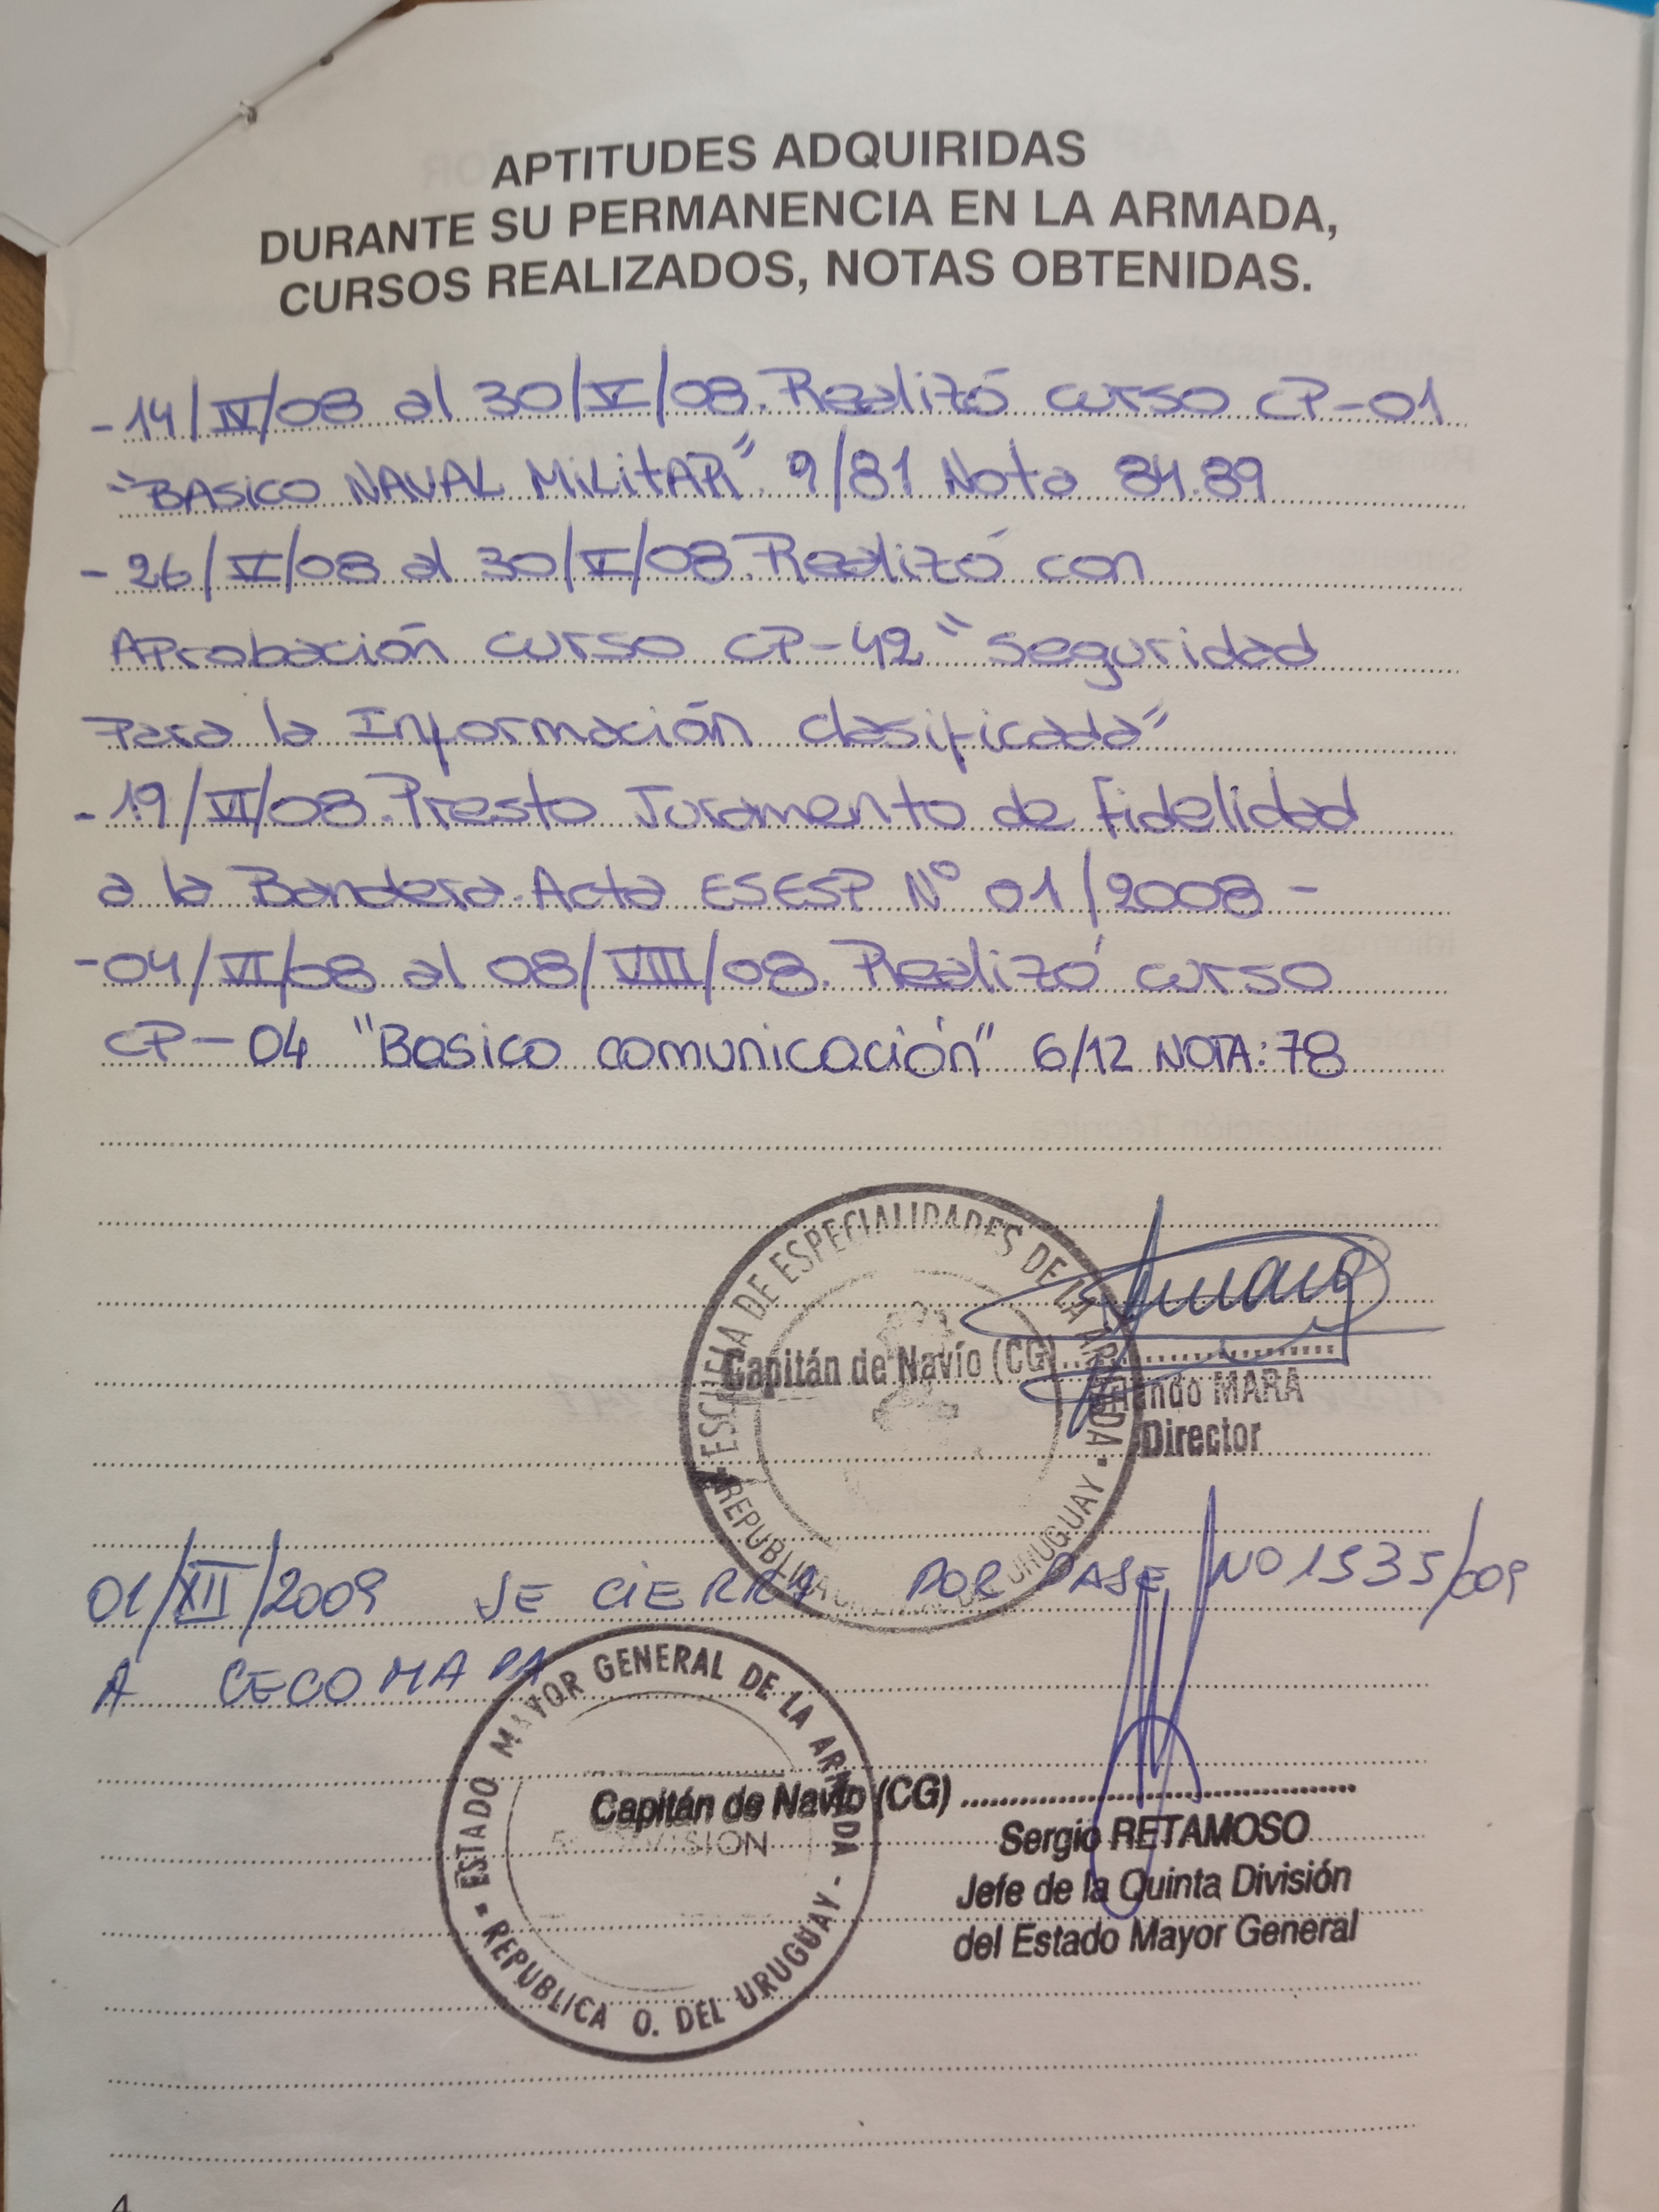 APTITUDES ADQUIRIDAS
DURANTE SU PERMANENCIA EN LA ARMADA,
CURSOS REALIZADOS, NOTAS OBTENIDAS.
-14/IV/08 al 30/V/08. Realizó curso CP-01
"BASICO NAVAL MiLitAR" 9/81 Nota 84.89
-26/V/08 al 30/V/08. Realizó con
Aprobación curso CP-42 "seguridad
Para la Información clasificada"
-19/VI/08. Presto Juramento de Fidelidad
a la Bandera. Acta ESESP Nº 01/2008 -
-04/VI/08 al 08/VIII/08. Realizó curso
CP-04 "Basico comunicación" 6/12 NOTA: 78
ESCUELA DE ESPECIALIDADES DE LA ARMADA
REPUBLICA URUGUAY
Capitán de Navío (CG)
MARA
Director
01/XII/2009 SE CIERRA POR PASE NO 1535/009
A CECOMAPA
ESTADO MAYOR GENERAL DE LA ARMADA
DIVISION
REPUBLICA O. DEL URUGUAY
Capitán de Navío (CG)
Sergio RETAMOSO
Jefe de la Quinta División
del Estado Mayor General
4